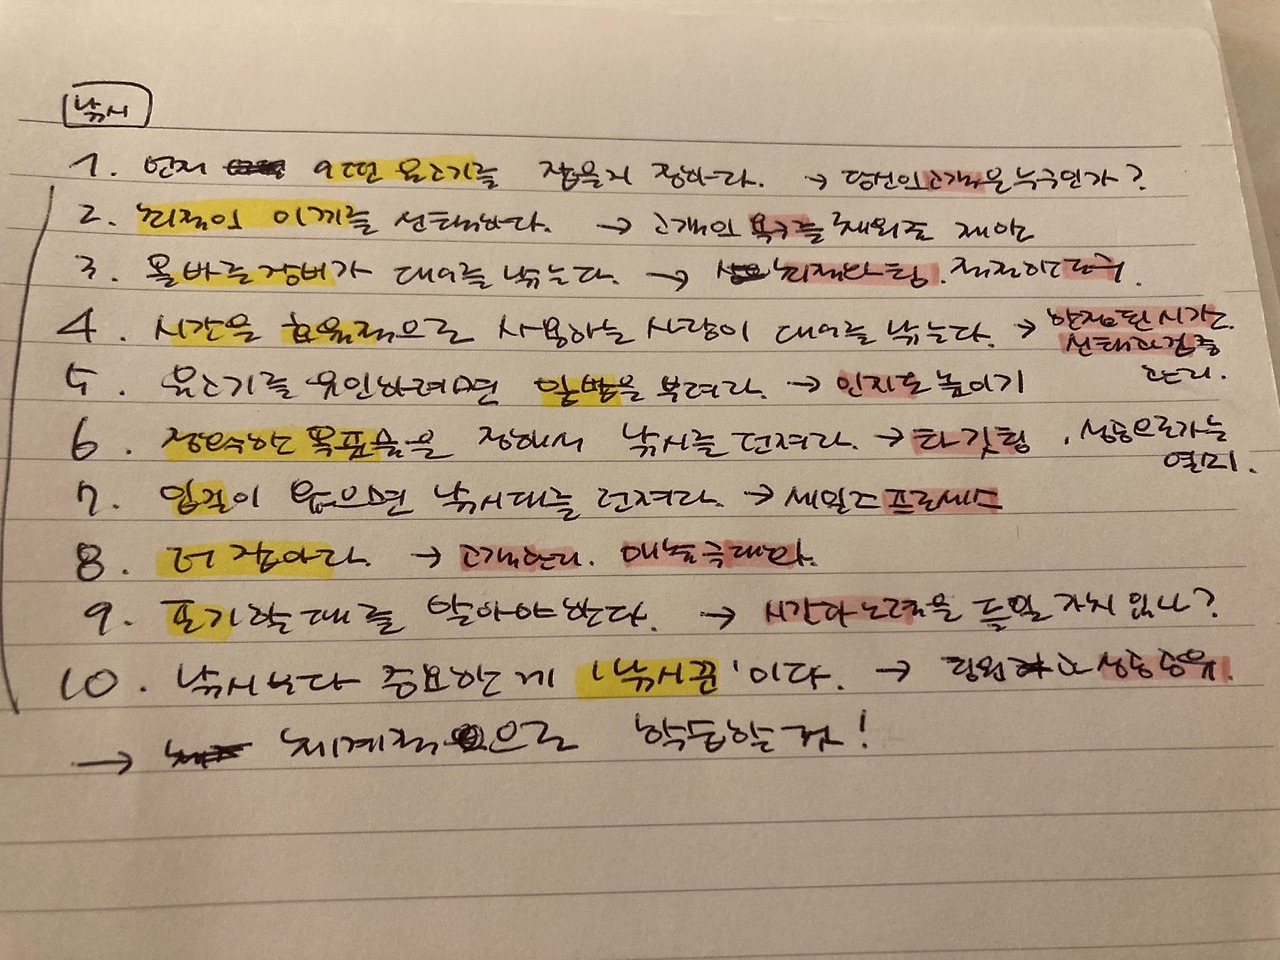 낚시
1. 먼저 어떤 물고기를 잡을지 정하라. → 당신의 고객은 누구인가?
2. 최적의 미끼를 선택하다. → 고객의 욕구를 채워줄 제안
3. 올바른 장비가 대어를 낚는다. → 최적화된 팀.
4. 시간을 효율적으로 사용하는 사람이 대어를 낚는다. → 한정된 시간.
선택과 집중
관리.
5. 물고기를 유인하려면 밑밥을 뿌려라. → 인지도 높이기
6. 정확한 목표물을 정해서 낚시를 던져라. → 타깃팅, 성공으로 가는
열쇠.
7. 입질이 없으면 낚시대를 던져라. → 세일즈 프로세스
8. 더 잡아라. → 고객관리. 매출극대화.
9. 포기할 때를 알아야 한다. → 시간과 노력을 들일 가치 있나?
10. 낚시보다 중요한게 '낚시꾼'이다. → 팀원 성공공유.
→ 체계적으로 학습할 것!